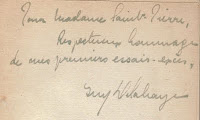 Pour madame Saint-Pierre,
Respectueux hommage
de mes premiers essais-